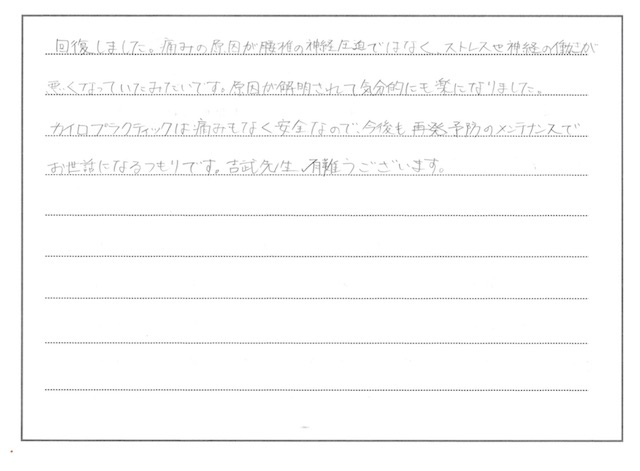 回復しました。痛みの原因が腰椎の神経圧迫ではなく、ストレスや神経の働きが
悪くなっていたみたいです。原因が解明されて気分的にも楽になりました。
カイロプラクティックは痛みもなく安全なので、今後も再発予防のメンテナンスで
お世話になるつもりです。吉武先生、有難うございます。